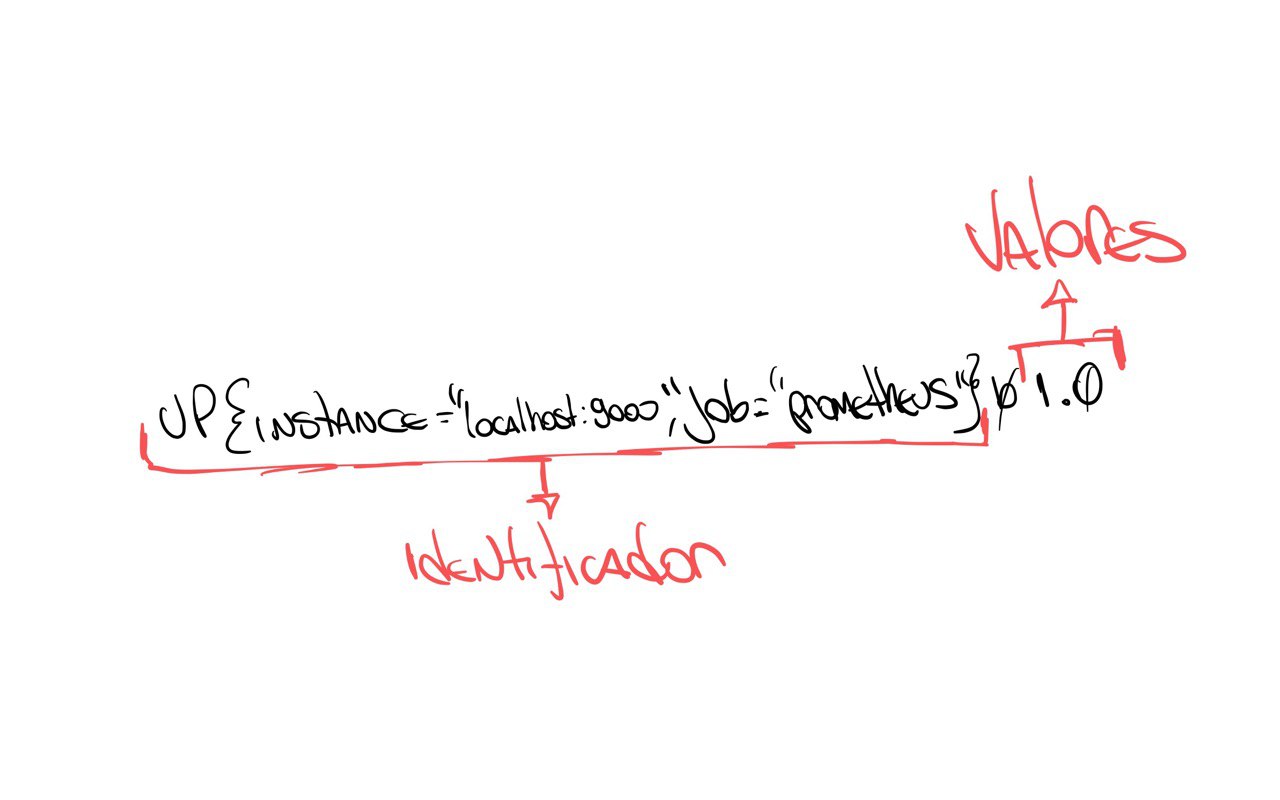 VALORES
UP{INSTANCE="localhost:9000",Job="prometheus"} 1.0
IDENTIFICADOR